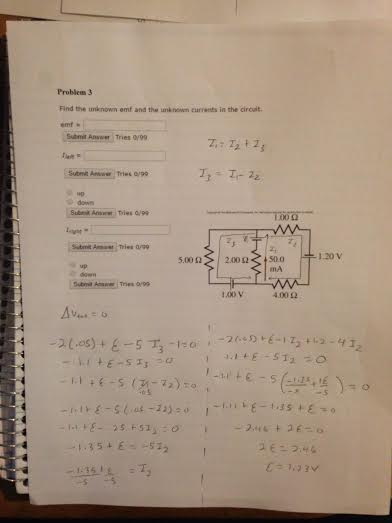 Problem 3
Find the unknown emf and the unknown currents in the circuit.
emf =
Submit Answer Tries 0/99
I left =
Submit Answer Tries 0/99
up
down
Submit Answer Tries 0/99
I right =
Submit Answer Tries 0/99
up
down
Submit Answer Tries 0/99
I₁ = I₂ + I₃
I₃ = I₁ - I₂
1.00 Ω
I₃
I₂
I₁
5.00 Ω
2.00 Ω
50.0
mA
1.20 V
1.00 V
4.00 Ω
ΔV = 0
-2(.05) + ε - 5 I₃ - 1 = 0
-1.1 + ε - 5 I₃ = 0
-1.1 + ε - 5 (I₁ - I₂) = 0
.05
-1.1 + ε - 5 (.05 - I₂) = 0
-1.1 + ε - .25 + 5 I₂ = 0
-1.35 + ε = -5 I₂
-1.35 + ε
-5 -5
= I₂
-2(.05) + ε - 1 I₂ + 1.2 - 4 I₂
1.1 + ε - 5 I₂ = 0
+ ε - 5 (-1.35 + ε) = 0
-5 -5
+ ε - 1.35 + ε = 0
-2.46 + 2ε = 0
2ε = 2.46
ε = 1.23 V